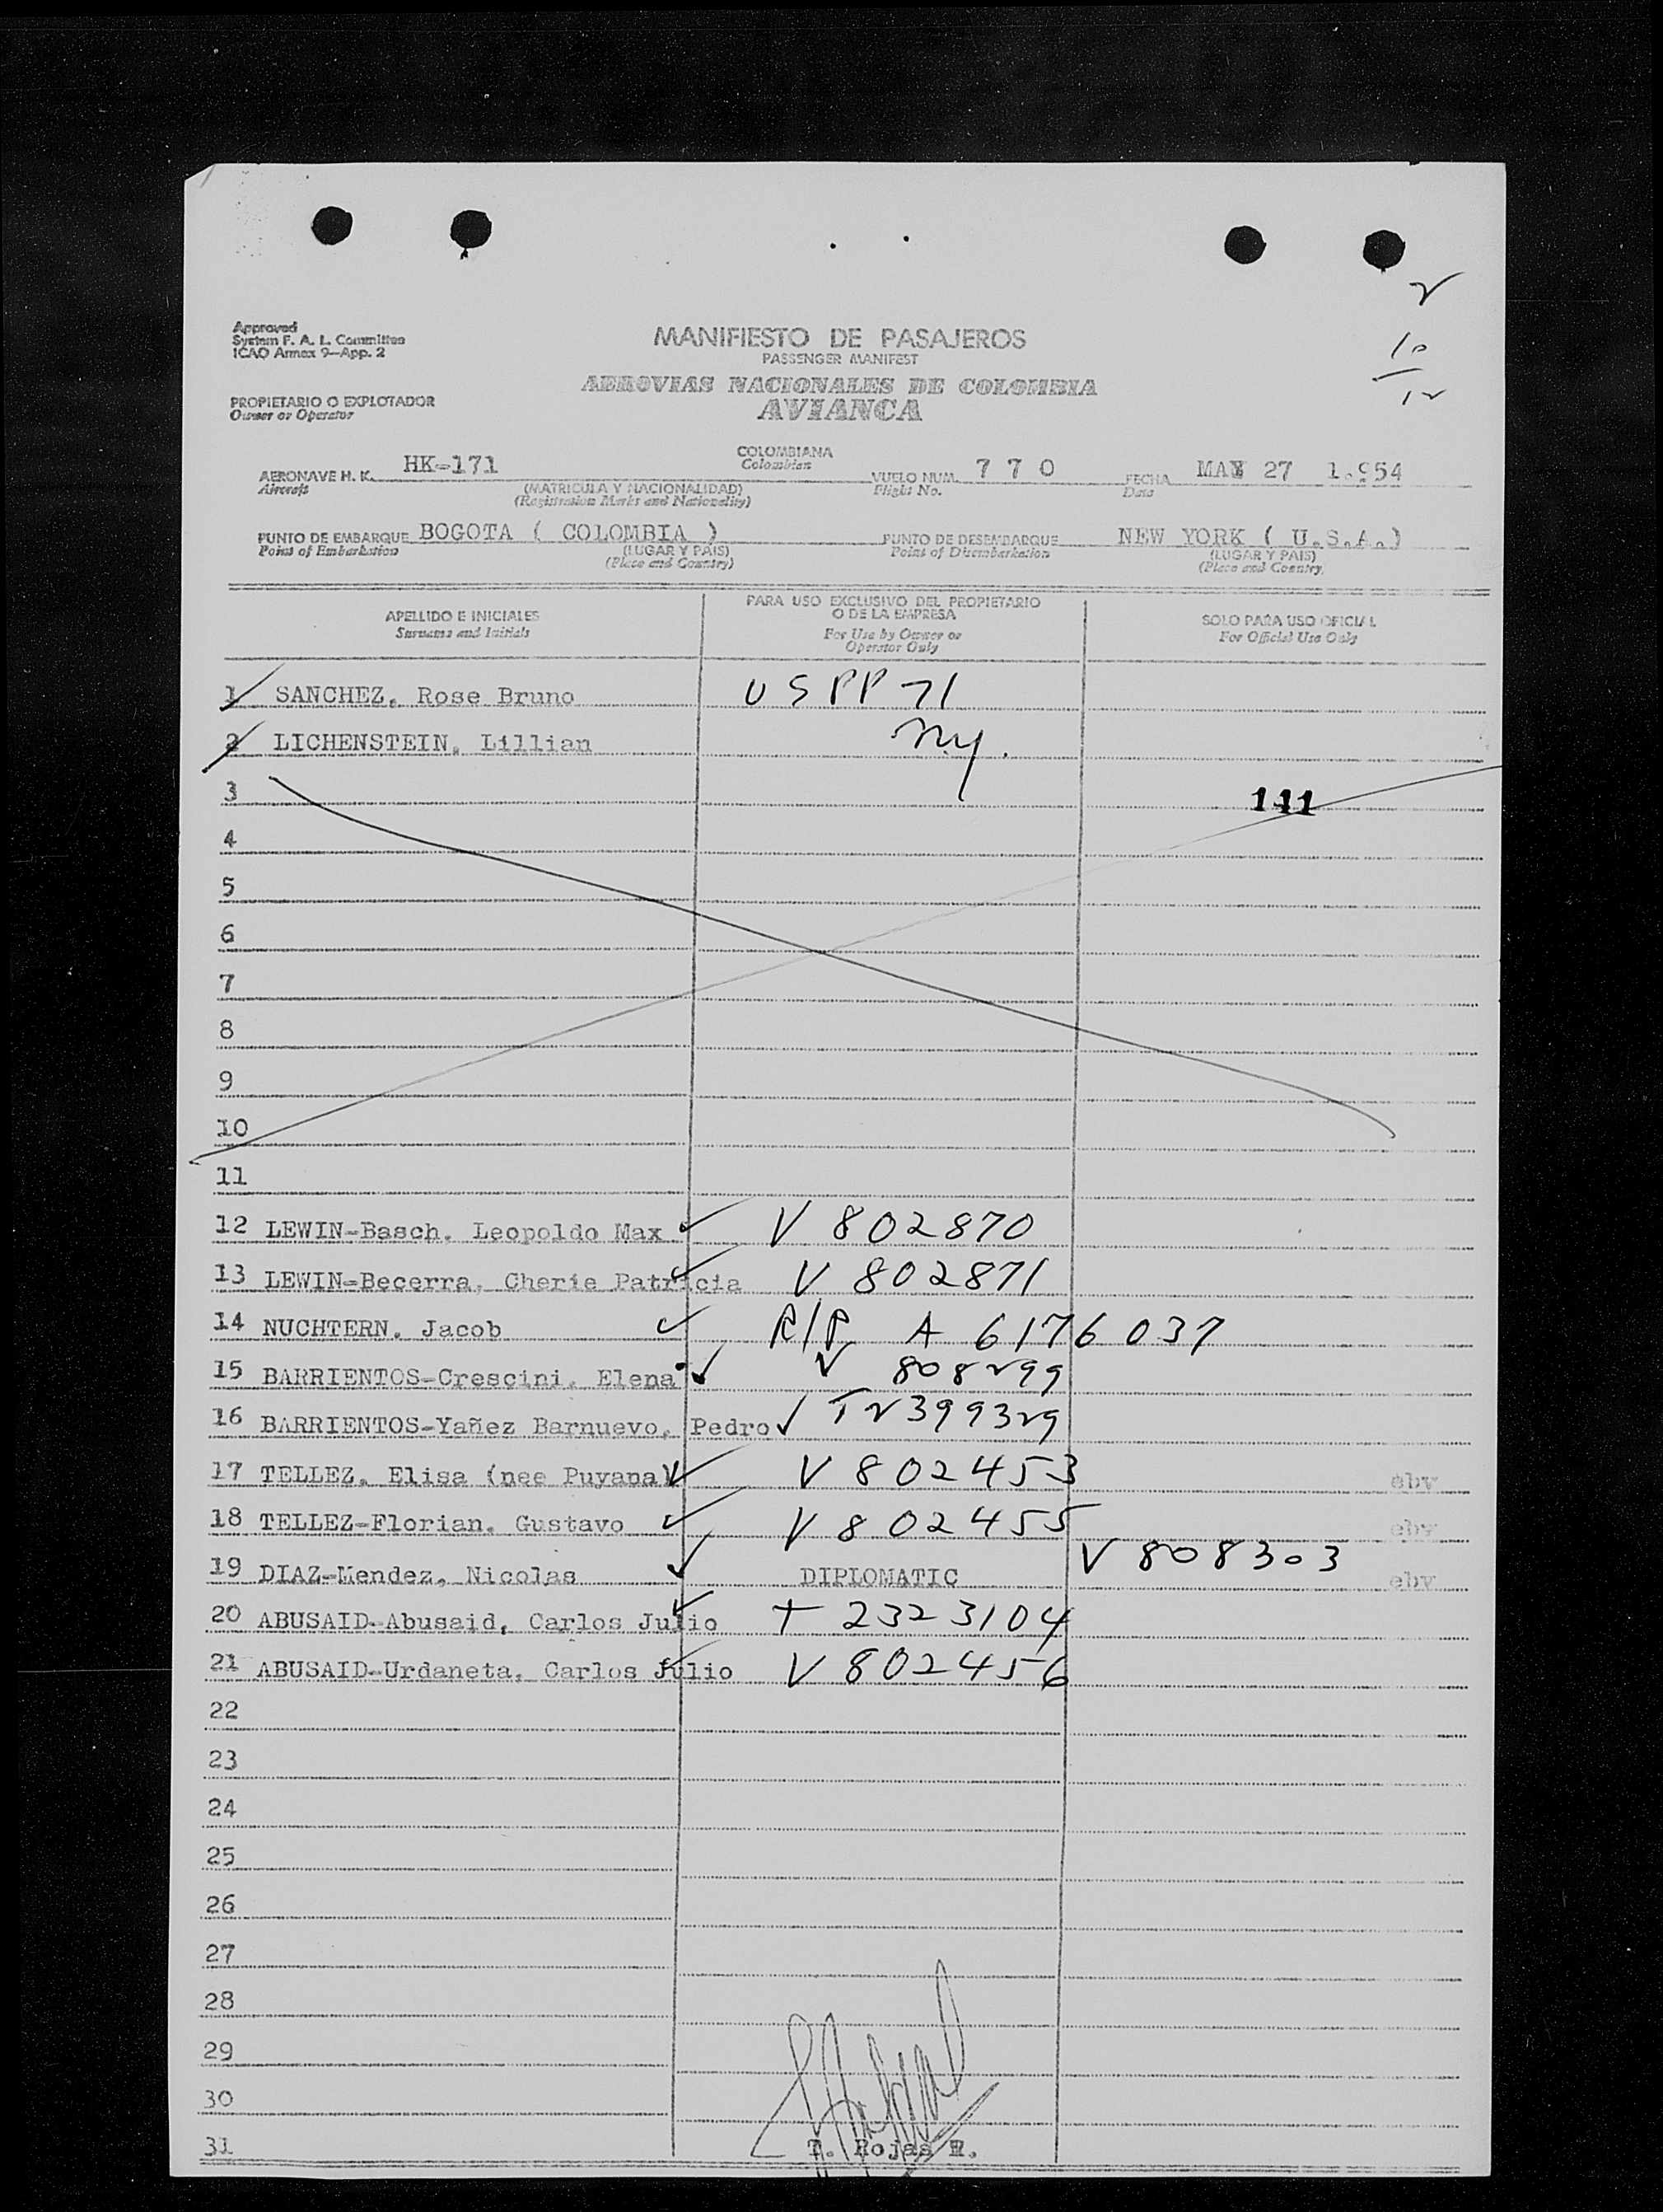 2
10
12
Approved
System F. A. L. Committee
ICAO Annex 9—App. 2
MANIFIESTO DE PASAJEROS
PASSENGER MANIFEST
AEROVIAS NACIONALES DE COLOMBIA
AVIANCA
PROPIETARIO O EXPLOTADOR
Owner or Operator
AERONAVE H. K. HK-171
Aircraft
(MATRICULA Y NACIONALIDAD)
(Registration Marks and Nationality)
COLOMBIANA
Colombian
VUELO NUM. 7 7 0
Flight No.
FECHA MAY 27 1.954
Date
PUNTO DE EMBARQUE BOGOTA ( COLOMBIA )
Point of Embarkation
(LUGAR Y PAIS)
(Place and Country)
PUNTO DE DESEMBARQUE NEW YORK ( U.S.A.)
Point of Disembarkation
(LUGAR Y PAIS)
(Place and Country)
APELLIDO E INICIALES
Surname and Initials
PARA USO EXCLUSIVO DEL PROPIETARIO
O DE LA EMPRESA
For Use by Owner or
Operator Only
SOLO PARA USO OFICIAL
For Official Use Only
1 SANCHEZ, Rose Bruno USPP 71
2 LICHENSTEIN, Lillian ny.
3 141
4
5
6
7
8
9
10
11
12 LEWIN-Basch, Leopoldo Max V 802870
13 LEWIN-Becerra, Cherie Patricia V 802871
14 NUCHTERN, Jacob R/P A 6176037
15 BARRIENTOS-Crescini, Elena V 808299
16 BARRIENTOS-Yañez Barnuevo, Pedro T2399329
17 TELLEZ, Elisa (nee Puyana) V 802453 ebv
18 TELLEZ-Florian, Gustavo V 802455 ebv
19 DIAZ-Mendez, Nicolas DIPLOMATIC V 808303 ebv
20 ABUSAID-Abusaid, Carlos Julio T 2323104
21 ABUSAID-Urdaneta, Carlos Julio V 802456
22
23
24
25
26
27
28
29
30
31
T. Rojas H.